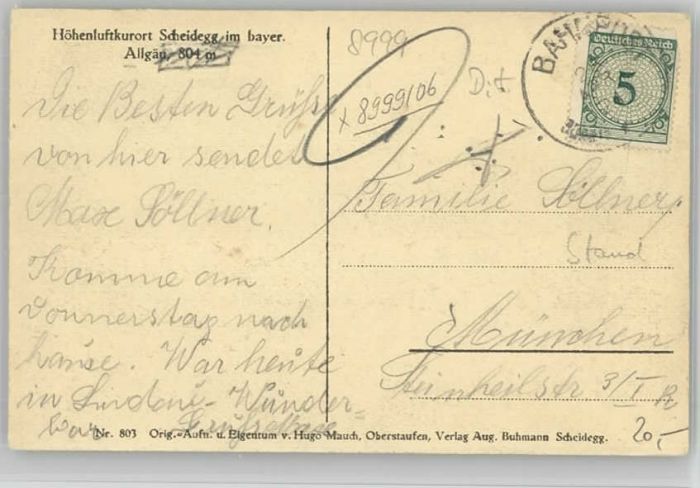 Höhenluftkurort Scheidegg im bayer.
Allgäu, 804 m
Die Besten Grüße
von hier sendet
Max Söllner.
Komme am
Donnerstag nach
hause. War heute
in Lindau. Wunder=
bar
8999
x 8999/06
Deutsches Reich
5
Familie Söllner
Stand
München
Steinheilstr 3/I R
20,-
Nr. 803 Orig.-Aufn. u. Eigentum v. Hugo Mauch, Oberstaufen, Verlag Aug. Buhmann Scheidegg.